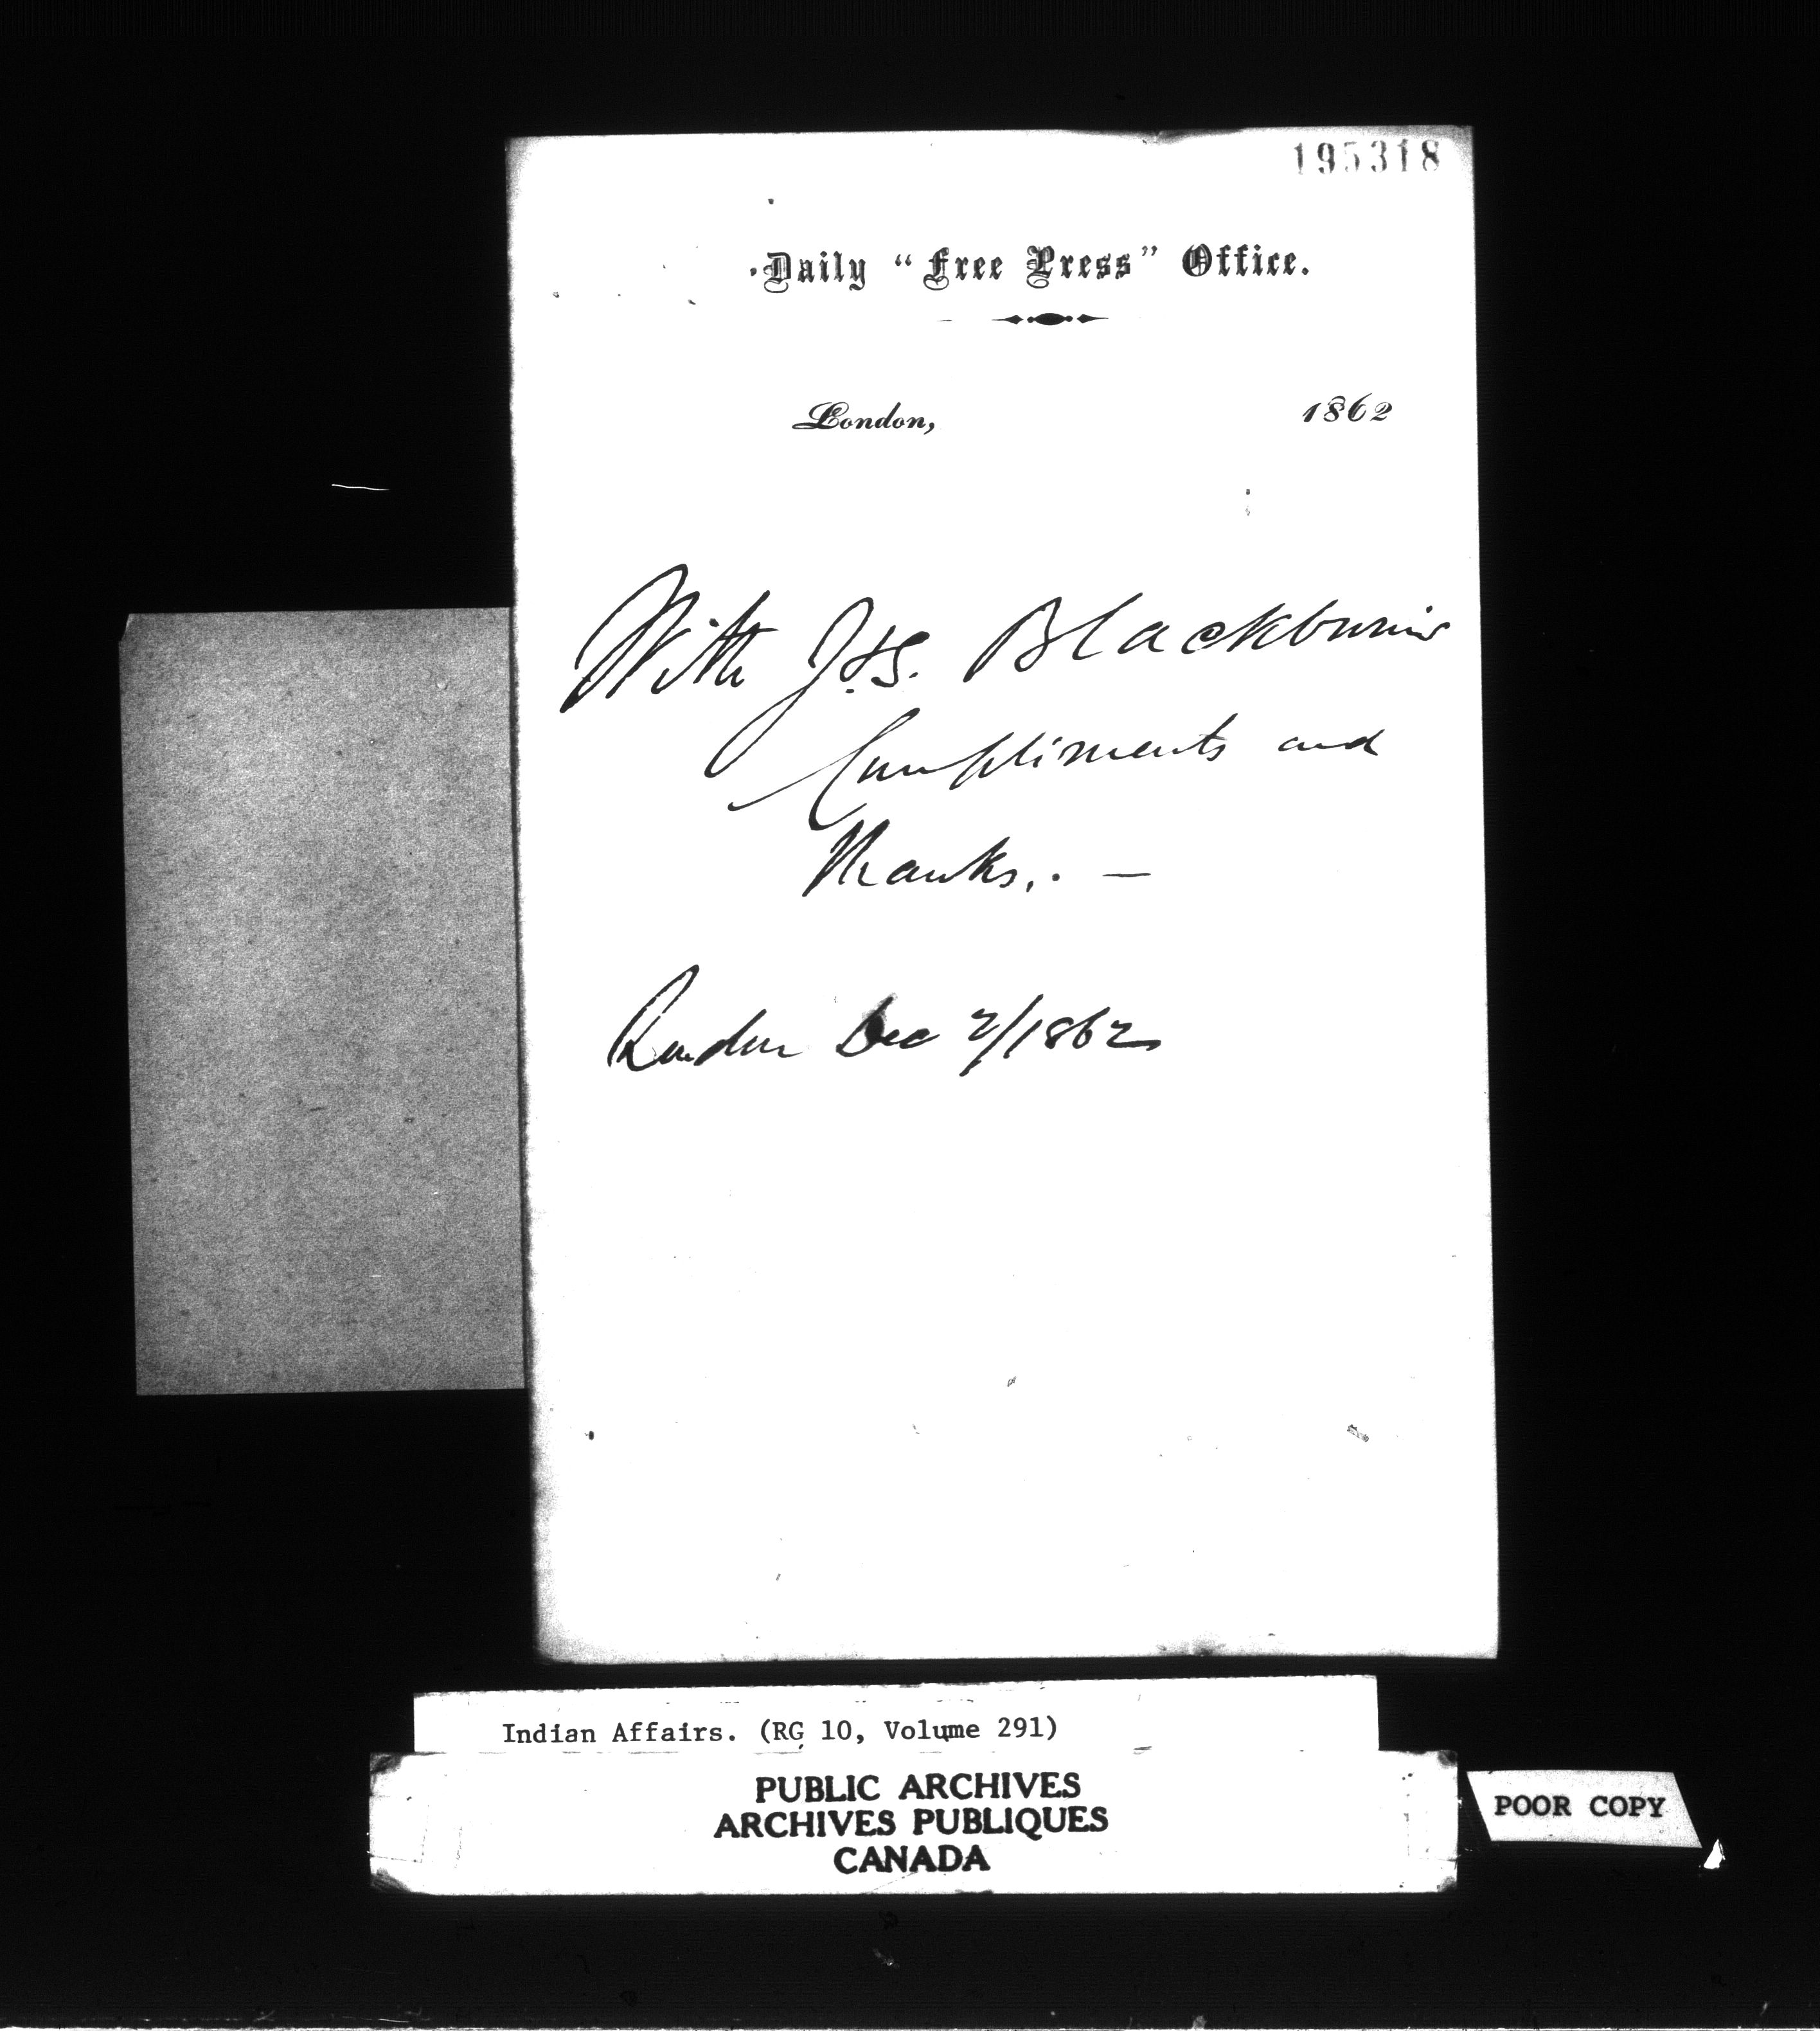 195318
Daily "Free Press" Office.
London, 1862
With Jos. Blackburns
Compliments and
Thanks. . —
London Dec 2/1862
Indian Affairs. (RG 10, Volume 291)
PUBLIC ARCHIVES
ARCHIVES PUBLIQUES
CANADA
POOR COPY